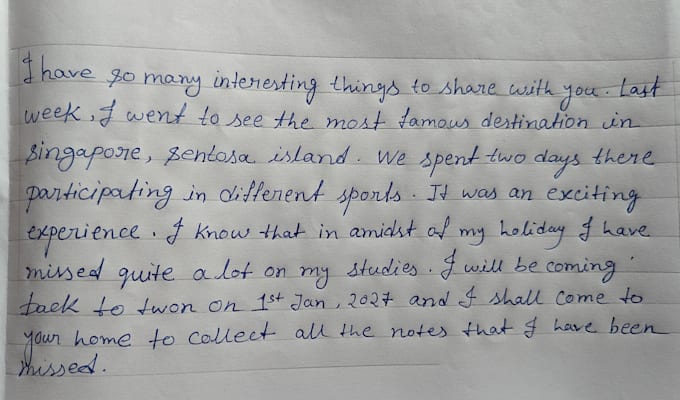 I have so many interesting things to share with you. Last
week, I went to see the most famous destination in
Singapore, Sentosa island. We spent two days there
participating in different sports. It was an exciting
experience. I know that in amidst of my holiday I have
missed quite a lot on my studies. I will be coming
back to twon on 1st Jan, 2027 and I shall come to
your home to collect all the notes that I have been
missed.